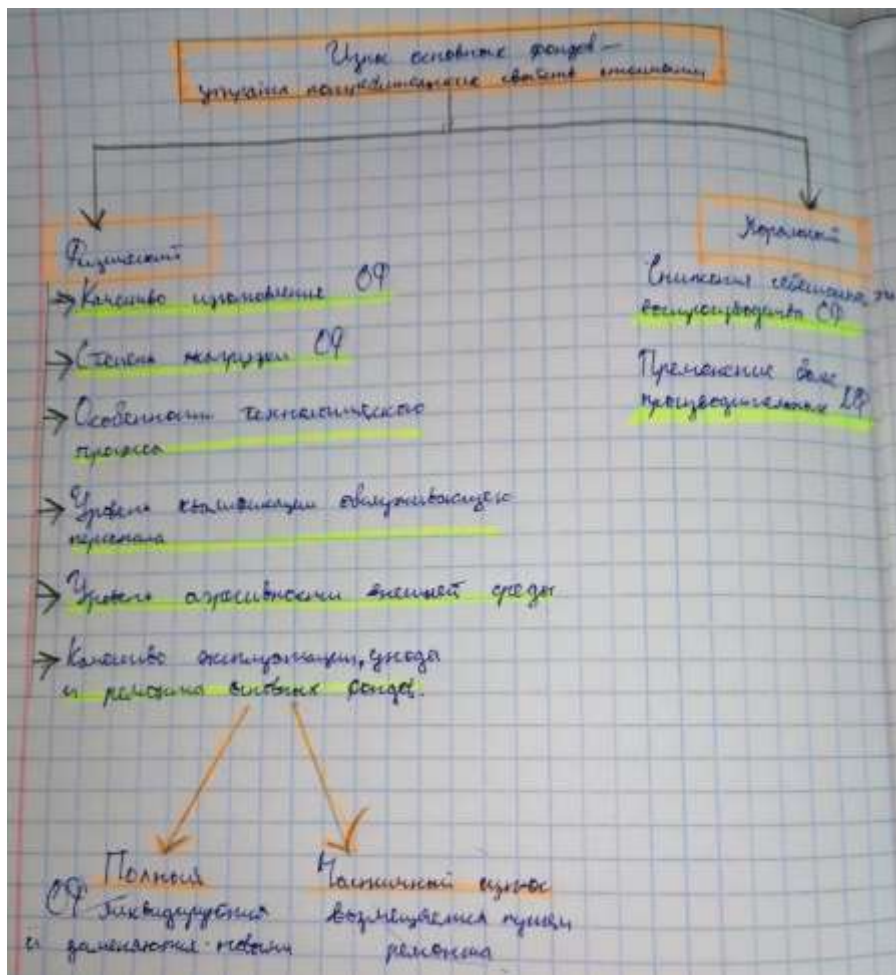 Износ основных фондов –
утрата потребительских свойств
Физический
Качество изготовление ОФ
Степень загрузки ОФ
Особенности технологического
процесса
Уровень квалификации обслуживающего
персонала
Уровень агрессивности внешней среды
Качество эксплуатации, ухода
и ремонта основных фондов.
Полный
ОФ ликвидируются
и заменяются новыми
Частичный износ
возмещается путем
ремонта
Моральный
Снижения
воспроизводства ОФ
Пременение более
производительных ОФ